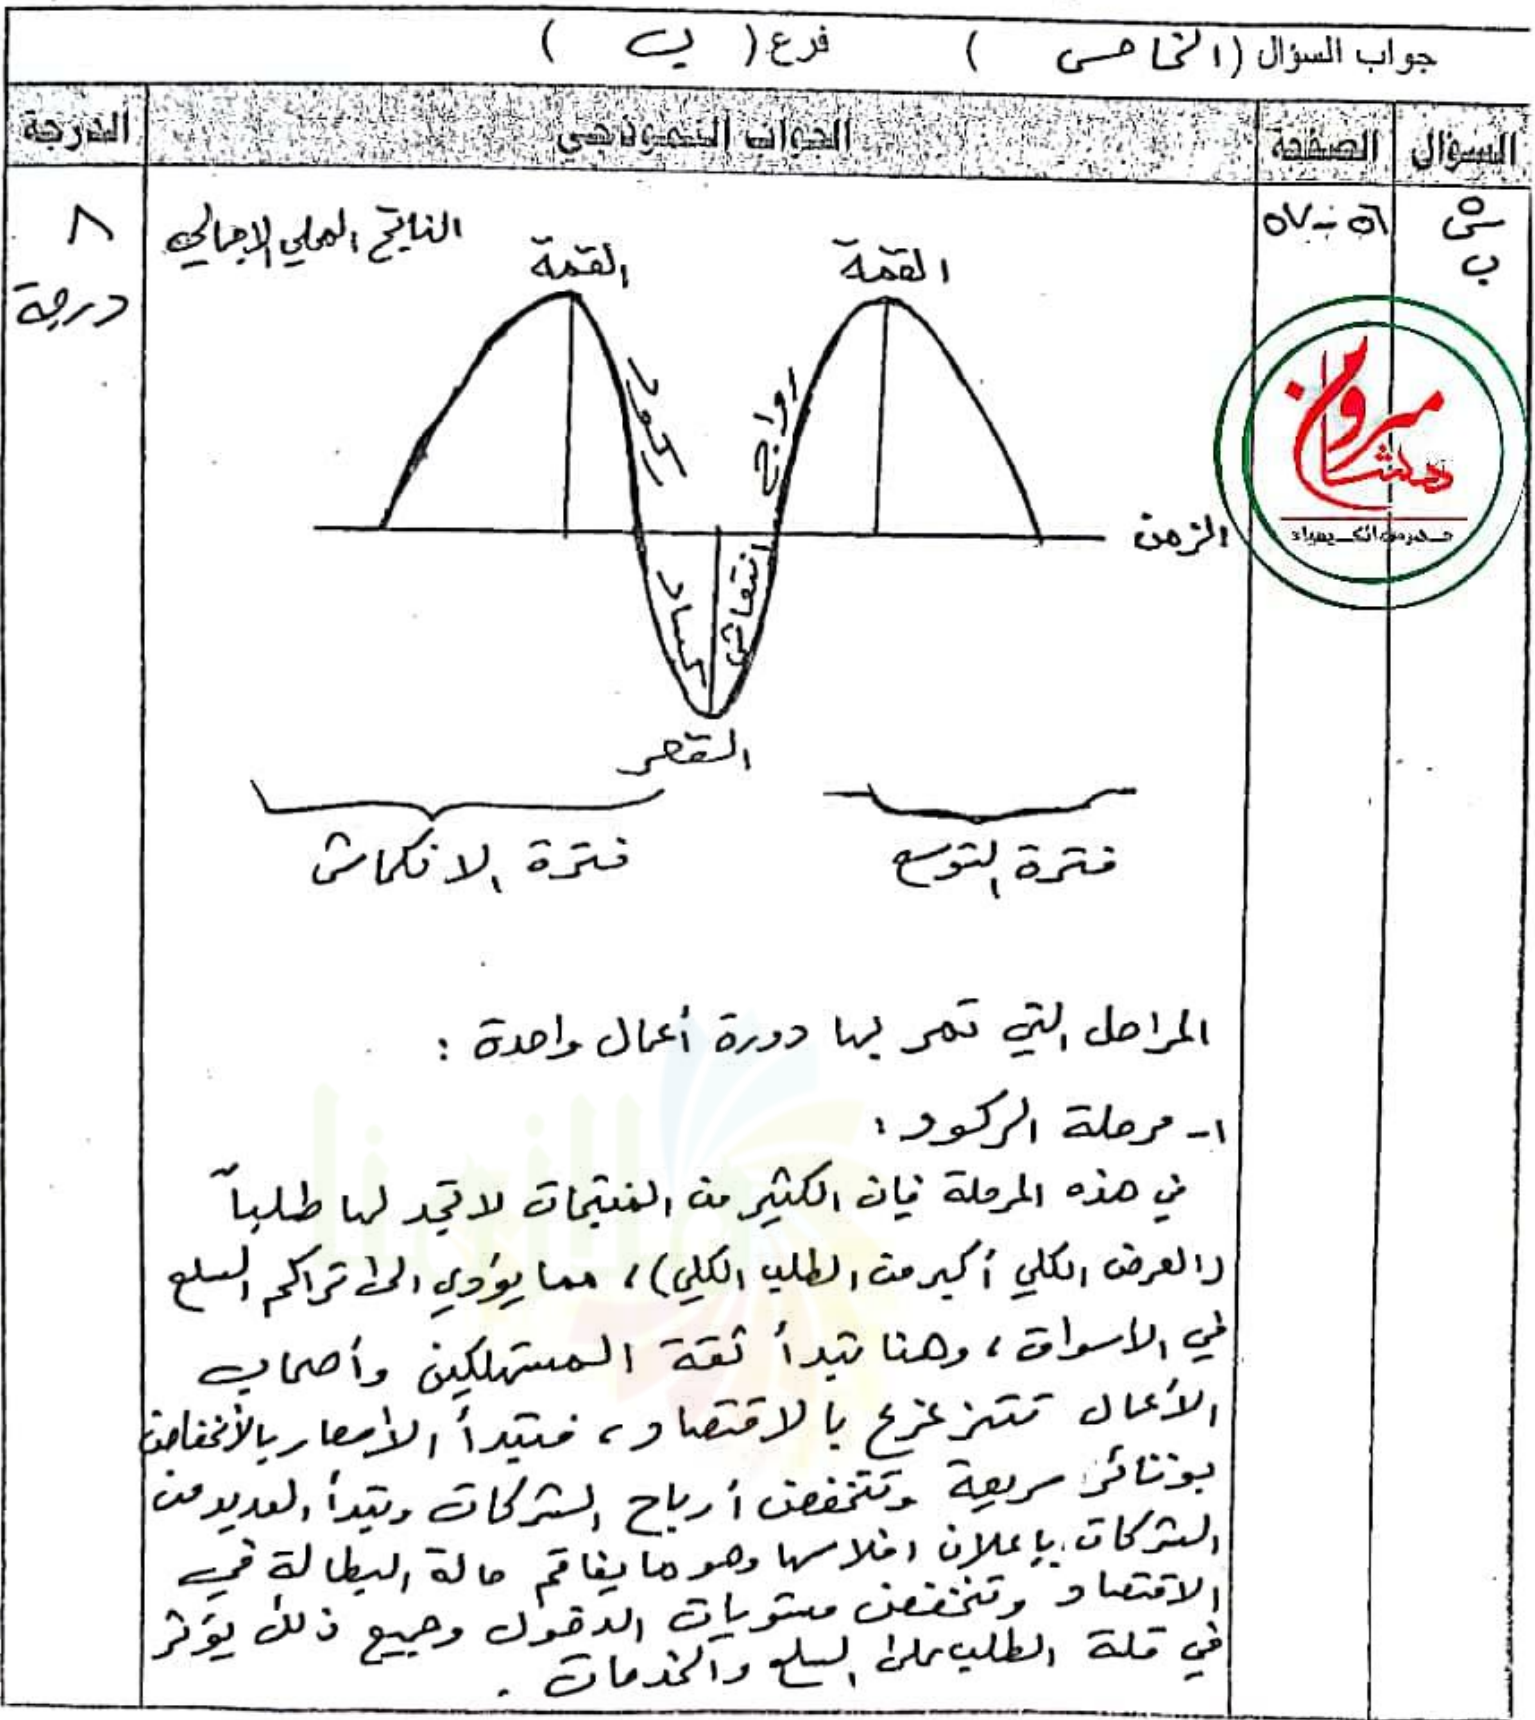 جواب السؤال ( الخامس ) فرع ( ب )
السؤال الصفحة الجواب النموذجي الدرجة
س٥ ب
٥٦ - ٥٧
٨ درجة
الناتج المحلي الاجمالي
القمة القمة
ركود رواج
الزمن
كساد انتعاش
القعر
فترة التوسع فترة الانكماش
المراحل التي تمر بها دورة أعمال واحدة :
١- مرحلة الركود :
في هذه المرحلة فإن الكثير من المنتجات لا تجد لها طلباً
(العرض الكلي أكبر من الطلب الكلي) ، مما يؤدي الى تراكم السلع
في الاسواق ، وهنا تبدأ ثقة المستهلكين وأصحاب
الأعمال تتزعزع بالاقتصاد ، فتبدأ الأسعار بالأنخفاض
بوتائر سريعة وتنخفض أرباح الشركات وتبدأ العديد من
الشركات بإعلان افلاسها وهو ما يفاقم حالة البطالة في
الاقتصاد وتنخفض مستويات الدخول وجميع ذلك يؤثر
في قلة الطلب على السلع والخدمات .
هشام مبروان